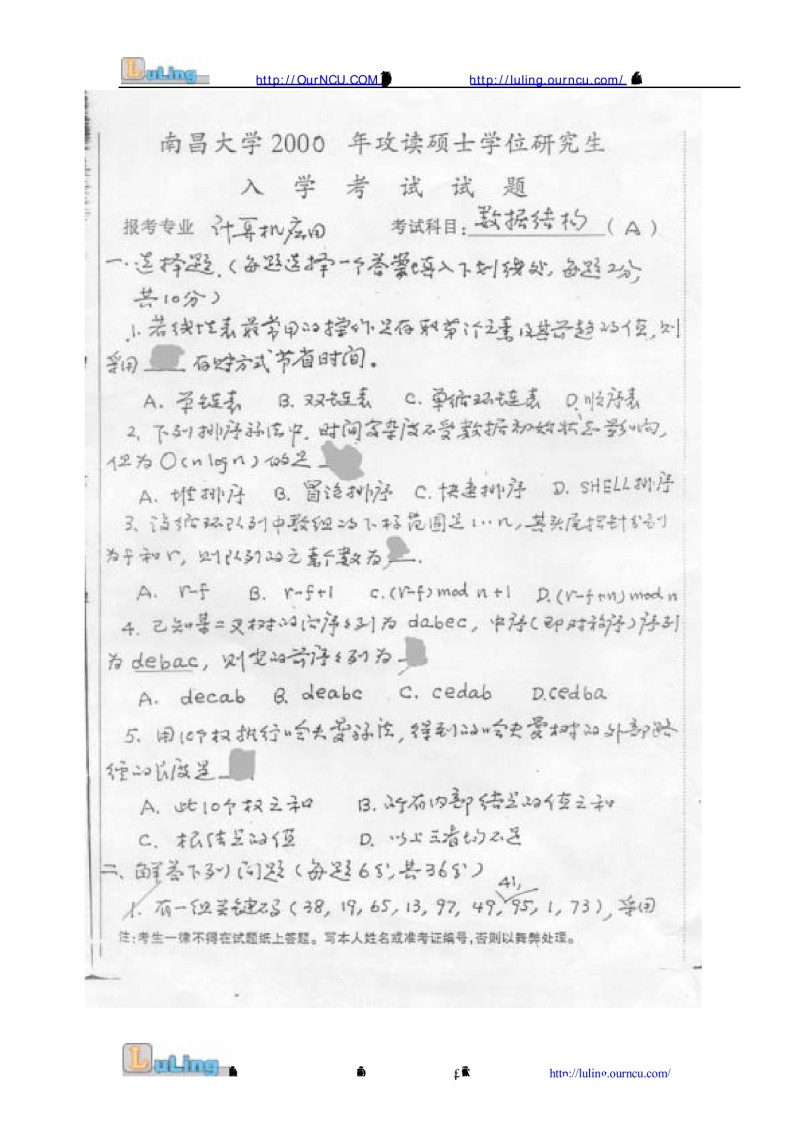 LuLing http://OurNCU.COM http://luling.ourncu.com/
南昌大学2000 年攻读硕士学位研究生
入 学 考 试 试 题
报考专业 计算机应用 考试科目: 数据结构 (A)
一.选择题.(每题选择一个答案填入下划线处,每题2分,
共10分)
1.若线性表最常用的操作是存取第i个元素及其前趋的值,则
采用 存贮方式节省时间。
A. 单链表 B. 双链表 C. 单循环链表 D. 顺序表
2. 下列排序算法中,时间复杂度不受数据初始状态影响,
但为O(nlogn)的是
A. 堆排序 B. 冒泡排序 C. 快速排序 D. SHELL排序
3. 设循环队列中数组的下标范围是1…n,其头尾指针分别
为f和r,则队列的元素个数为 .
A. r-f B. r-f+1 C.(r-f)mod n+1 D.(r-f+n)mod n
4. 已知某二叉树的后序序列为dabec,中序(即对称序)序列
为debac,则它的前序序列为
A. decab B. deabc C. cedab D.cedba
5. 用10个权执行哈夫曼算法,得到的哈夫曼树的外部路
径的长度是
A. 此10个权之和 B. 所有内部结点的值之和
C. 根结点的值 D. 以上三者均不是
二、解答下列问题(每题6分,共36分)
41,
1. 有一组关键码(38, 19, 65, 13, 97, 49, 95, 1, 73),采用
注:考生一律不得在试题纸上答题。写本人姓名或准考证编号,否则以舞弊处理。
LuLing http://luling.ourncu.com/